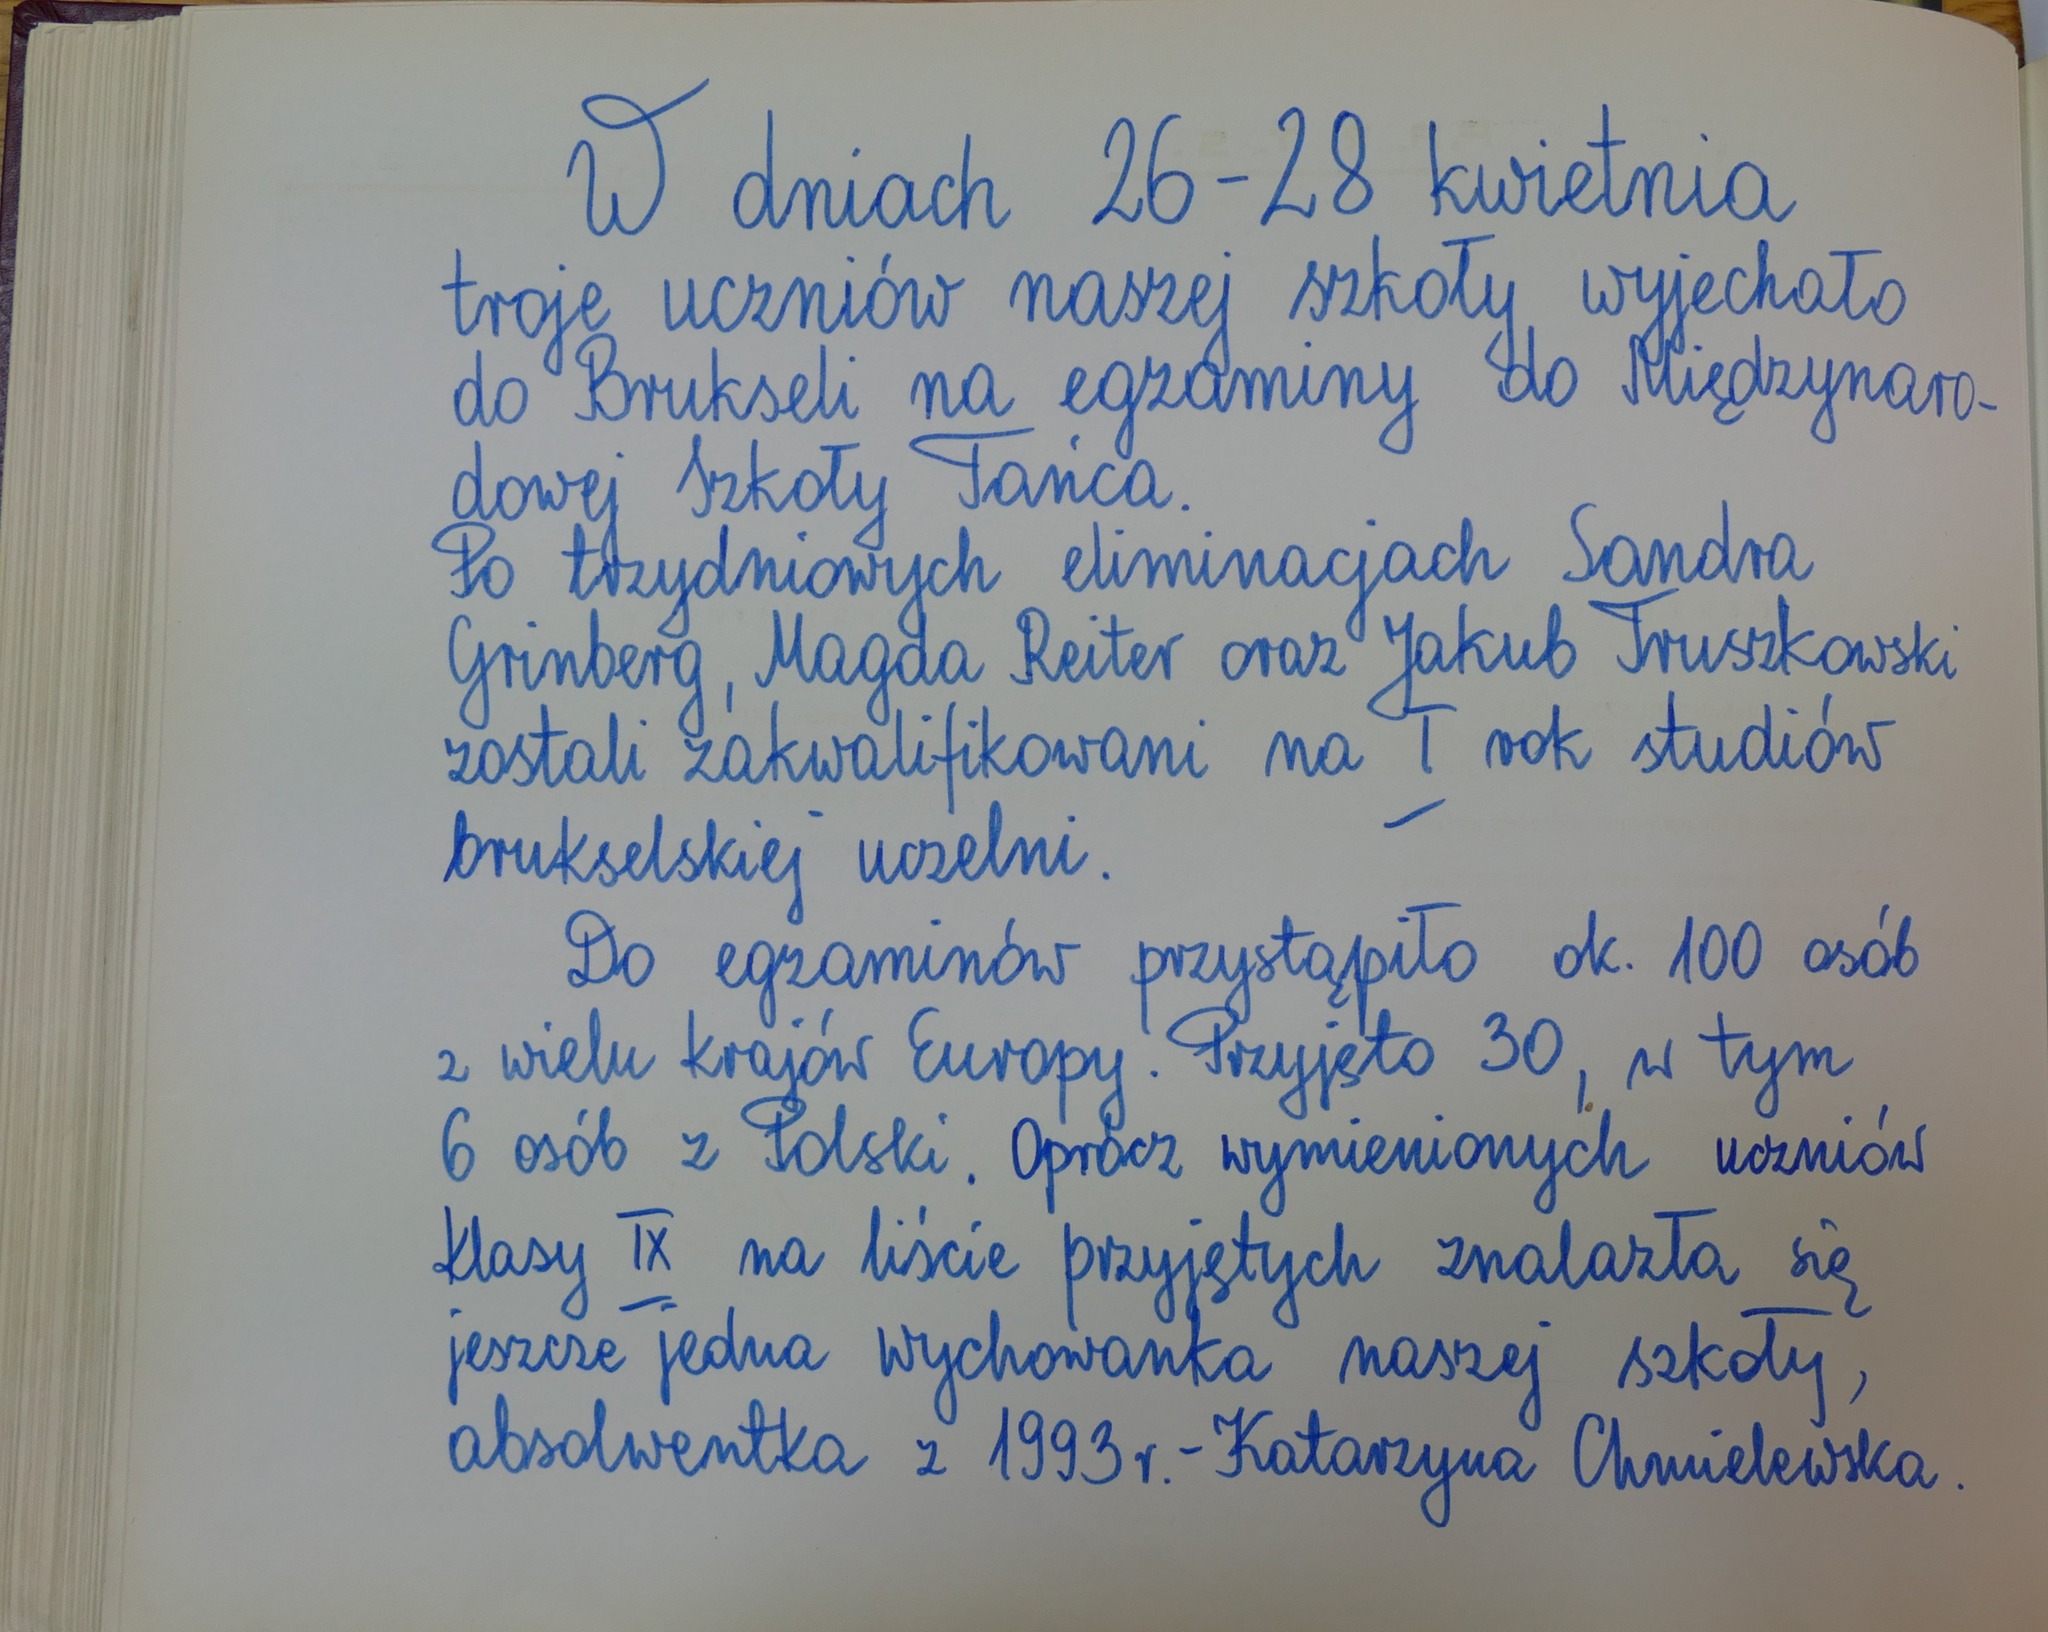 W dniach 26-28 kwietnia
troje uczniów naszej szkoły wyjechało
do Brukseli na egzaminy do Międzynaro-
dowej Szkoły Tańca.
Po trzydniowych eliminacjach Sandra
Grinberg, Magda Reiter oraz Jakub Truszkowski
zostali zakwalifikowani na I rok studiów
brukselskiej uczelni.
Do egzaminów przystąpiło ok. 100 osób
z wielu krajów Europy. Przyjęto 30, w tym
6 osób z Polski. Oprócz wymienionych uczniów
klasy IX na liście przyjętych znalazła się
jeszcze jedna wychowanka naszej szkoły,
absolwentka z 1993r.-Katarzyna Chmielewska.